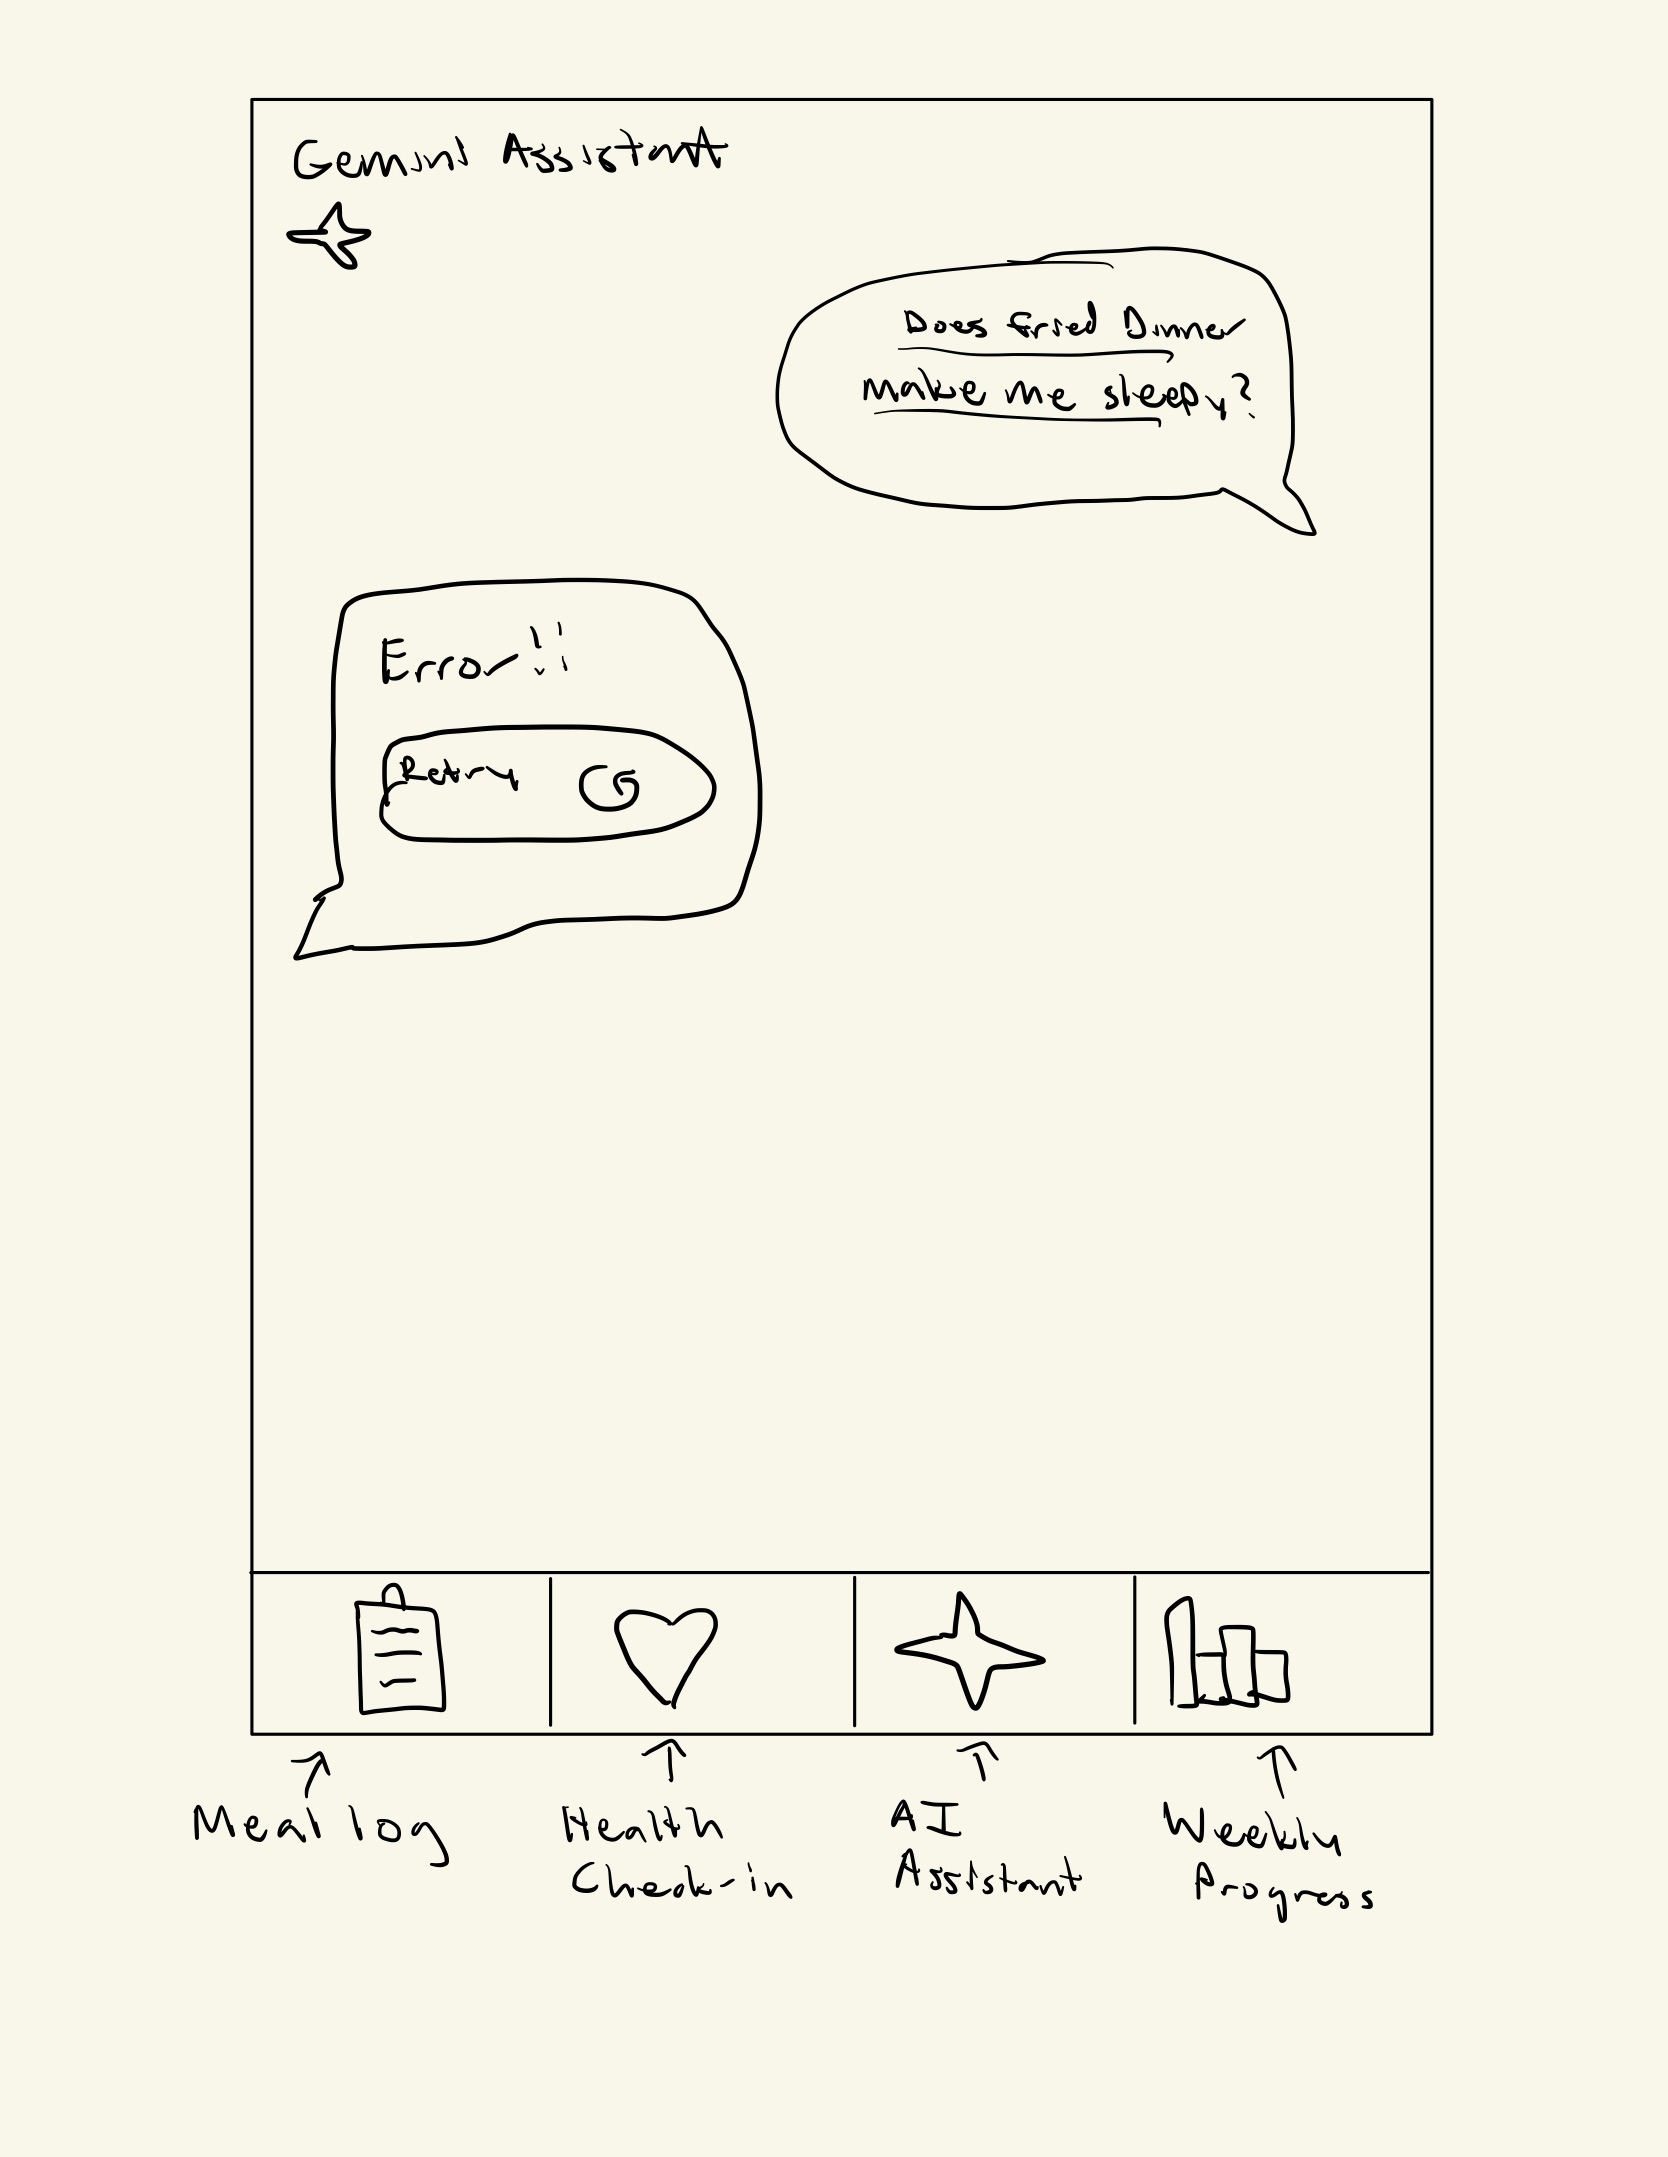 Gemini Assistant
Does fried Dinner
make me sleepy?
Error!!
Retry
Meal log
Health
Check-in
AI
Assistant
Weekly
Progress